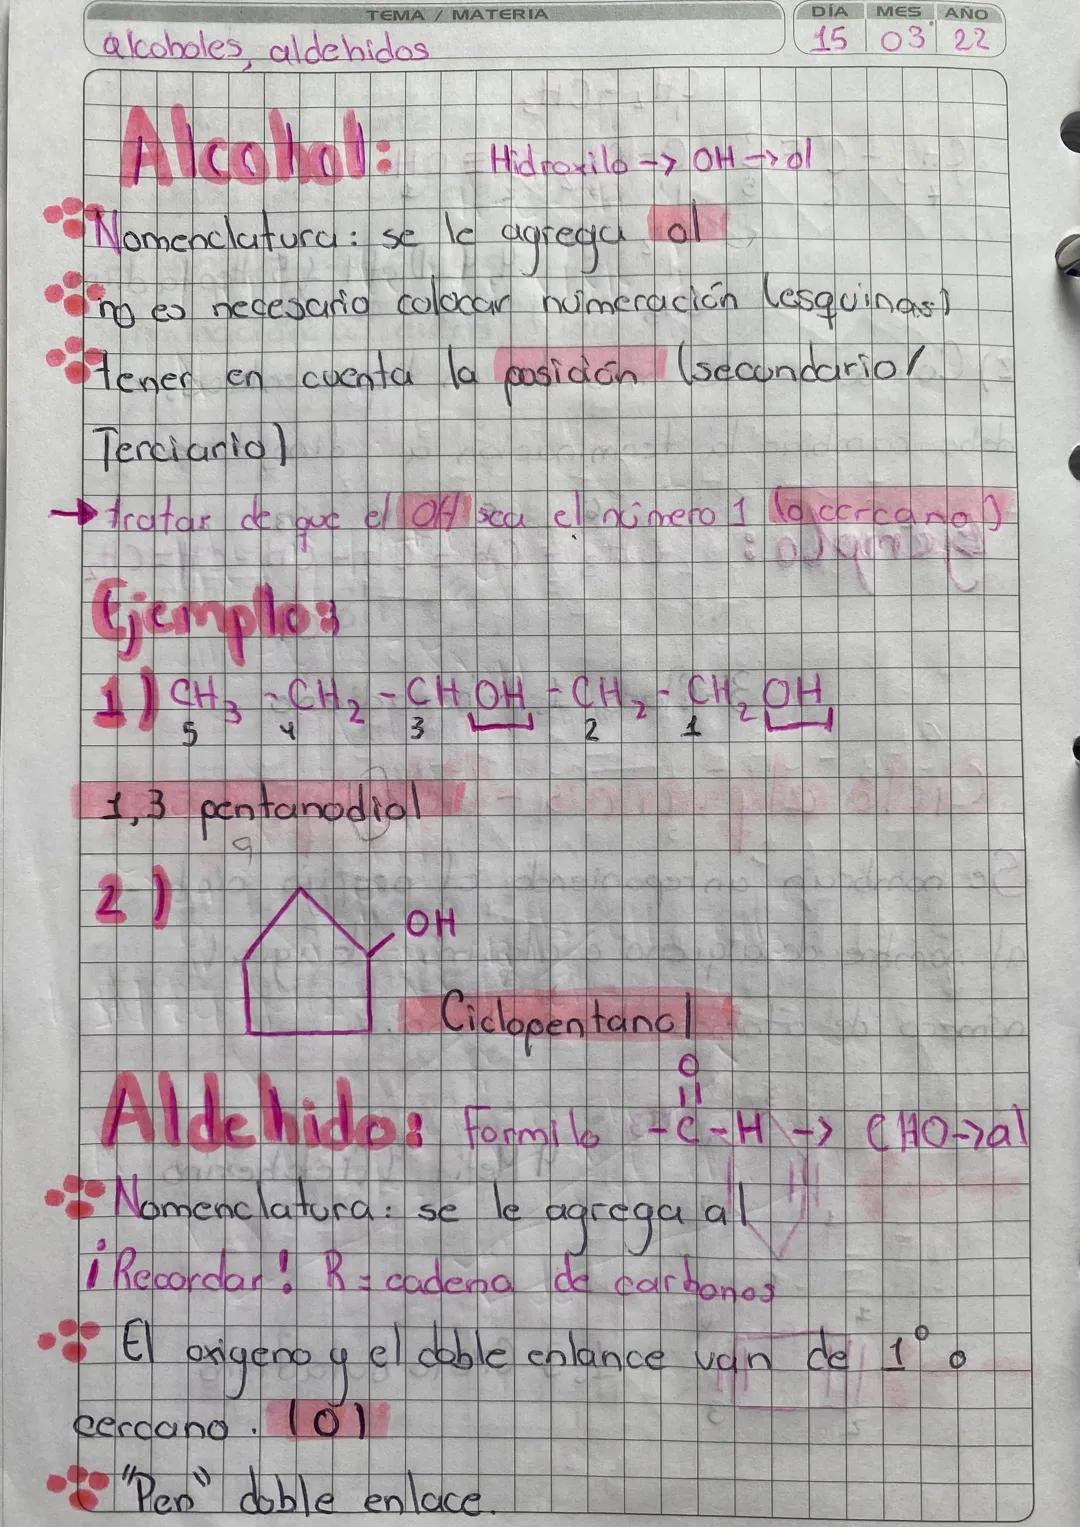 TEMA / MATERIA
DÍA MES AÑO
alcoholes, aldehidos
15 03 22
Alcohol: Hidroxilo -> OH -> ol
Nomenclatura: se le agrega ol
no es necesario colocar númeración (esquinas)
tener en cuenta la posición (secundario/
Terciario)
→ tratar de que el OH sea el número 1 (o cercano)
Ejemplo:
1) CH3 - CH2 - CHOH - CH2 - CH2OH
5 4 3 2 1
1,3 pentanodiol
2)
OH
Ciclopentanol
O
Aldehido: Formilo -C-H -> CHO->al
Nomenclatura: se le agrega al
¡Recordar! R= cadena de carbonos
El oxigeno y el doble enlance van de 1° o
cercano. (O)
"Pen" doble enlace.